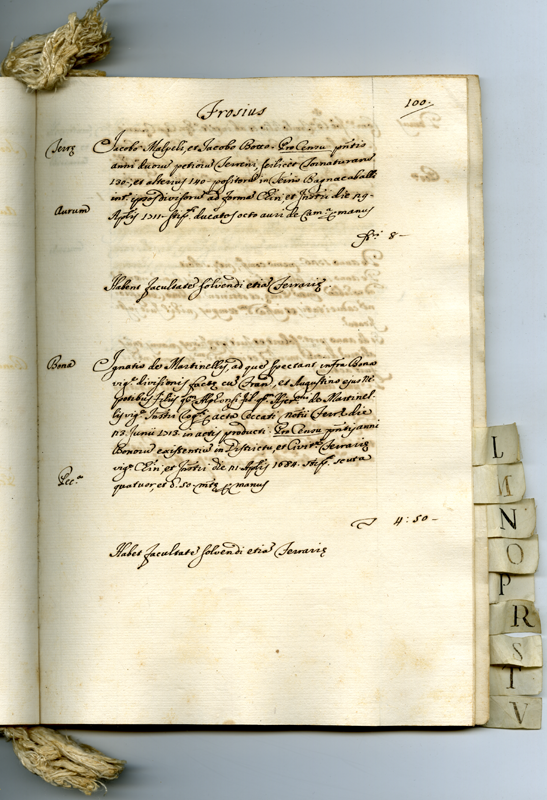 Frosius
100.
Terrę
Jacobo Malpeli, et Jacobo Botto. Pro Censu pntis
anni duorũ petiorũ Terreni scilicet Tornaturarũ
130., et alterius 140. positorũ in Bagnacaballi
int. ipsos divisorũ ad formã Cẽn, et Instri die 19.
Aurum
Aplis 1711. ducatos octo auri de Camã manus
8 -
Habent facultatẽ solvendi etiã Ferrarię.
Bona
Ignatio de Martinellis, ad quẽ spectant infra Bona
vigᵉ divisionis factę cũ Franᶜᵒ, et Augustino ejus Ne
potibus filijs qm Alphonsi de Martinel
lis vigᵉ Instri acta Ceccati Notii Ferr.ę die
13. Junij 1713. in actis producti. Pro Censu pntis anni
Bonorũ existentiũ in Districtu, et Civitᵉ Ferrarię
vigᵉ Cẽn, et Instri die 11. Aplis 1688. scuta
Pec.ᵃ
quatuor, et 50. manus
4:50 -
Habet facultatẽ solvendi etiã Ferrarię
L
M
N
O
P
R
S
T
V